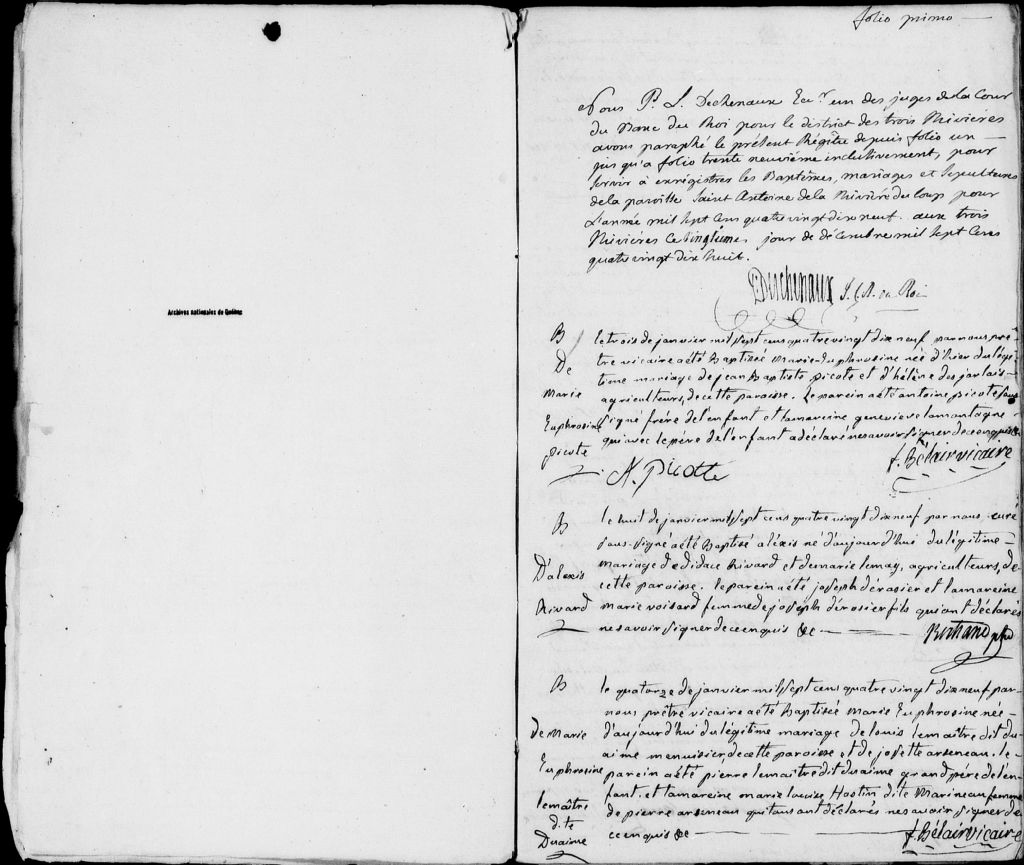 Archives nationales du Québec
folio primo
Nous P. L. Dechenaux Ecr. un des juges de la Cour
du Banc du Roi pour le district des trois Rivières
avons paraphé le présent Régître depuis folio un
jus qu'a folio trente neuvième inclusivement, pour
servir à enrégistrer les Baptêmes, mariages et sepultures
de la paroisse Saint Antoine de la Rivière du loup pour
L'année mil sept Cens quatre vingt dix neuf. aux trois
Rivières Ce vingtième jour de décembre mil sept Cens
quatre vingt dix huit.
P. Deschenaux J. C. B. du Roi
B
De
Marie
Euphrosine
picote
le trois de janvier mil sept cens quatre vingt dix neuf par nous prê-
tre vicaire a été Baptisée Marie-duphrosine née d'hier du légi-
time mariage de jean Baptiste picote et d'hélène desjarlais
agriculteurs, de cette paroisse. Le parein a été antoine picote sous
signé frére de l'enfant et la mareine genevieve lamontagne
qui avec le pére de l'enfant a déclaré ne savoir signer de ce enquis &c
f. Bélair vicaire
A. Picotte
B
D'alexis
Rivard
le huit de janvier mil sept cens quatre vingt dix neuf par nous curé
sous-signé a été Baptisé aléxis né d'aujourd'hui du légitime
mariage de didace Rivard et de marie lemay, agriculteurs, de
cette paroisse. le parein a été joseph dérosier et la mareine
marie voisard femme de joseph dérosier fils qui ont déclarés
ne savoir signer de ce enquis &c
Bertrand ptre
B
de Marie
Euphrosine
lemâitre
dite
Duaime
le quatorze de janvier mil sept cens quatre vingt dix neuf par
nous prêtre vicaire a été Baptisée Marie Euphrosine née
d'aujourd'hui du légitime mariage de louis lemaître dit du-
aime menuisier, de cette paroisse et de josette arseneau. le
parein a été pierre lemaître dit duaime grand pére de l'en-
fant. et la mareine marie louise Hostin dite Marineau femme
de pierre arseneau qui tous ont déclarés ne savoir signer de
ce enquis &c
f. Bélair vicaire